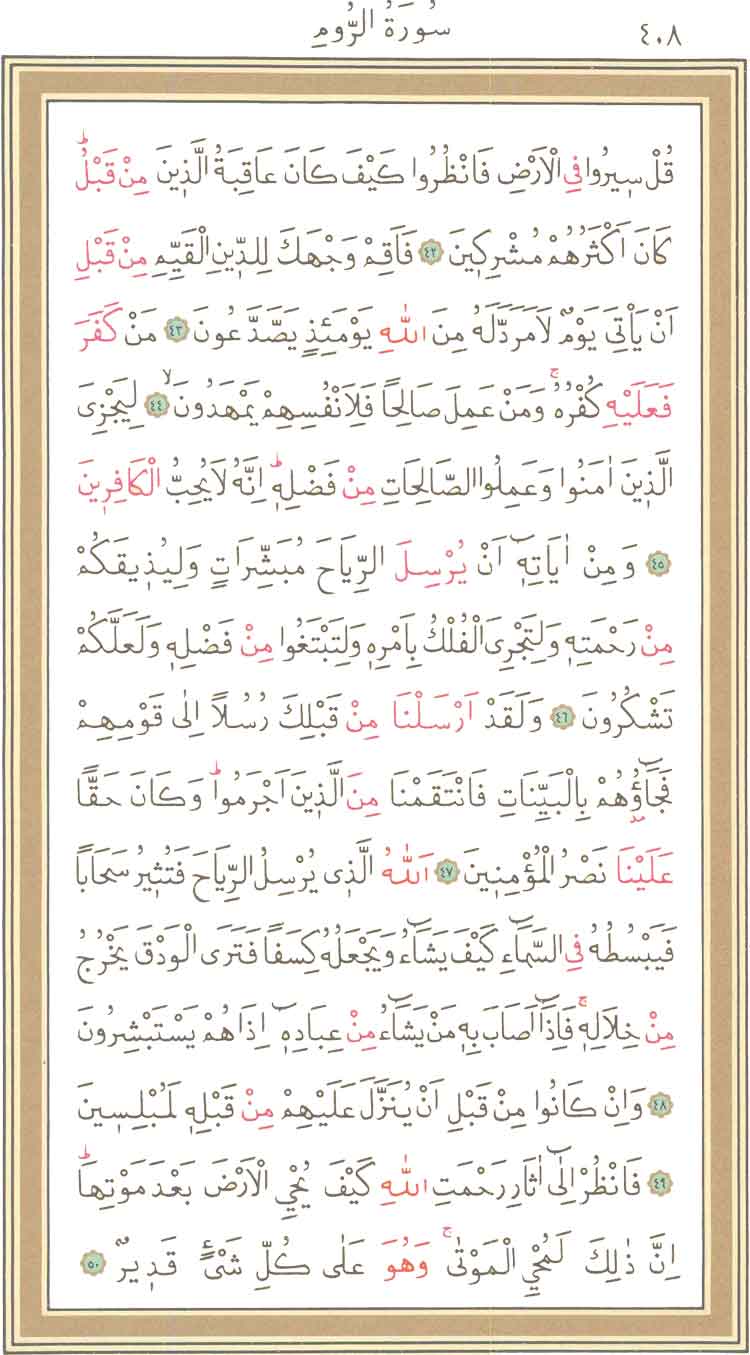 سُورَةُ الرُّومِ ٤٠٨
قُلْ سٖيرُوا فِي الْاَرْضِ فَانْظُرُوا كَيْفَ كَانَ عَاقِبَةُ الَّذٖينَ مِنْ قَبْلُؕ
كَانَ اَكْثَرُهُمْ مُشْرِكٖينَ ﴿٤٢﴾ فَاَقِمْ وَجْهَكَ لِلدّٖينِ الْقَيِّمِ مِنْ قَبْلِ
اَنْ يَأْتِيَ يَوْمٌ لَا مَرَدَّ لَهُ مِنَ اللّٰهِ يَوْمَئِذٍ يَصَّدَّعُونَ ﴿٤٣﴾ مَنْ كَفَرَ
فَعَلَيْهِ كُفْرُهُۚ وَمَنْ عَمِلَ صَالِحًا فَلِاَنْفُسِهِمْ يَمْهَدُونَۙ ﴿٤٤﴾ لِيَجْزِيَ
الَّذٖينَ اٰمَنُوا وَعَمِلُوا الصَّالِحَاتِ مِنْ فَضْلِهٖؕ اِنَّهُ لَا يُحِبُّ الْكَافِرٖينَ
﴿٤٥﴾ وَمِنْ اٰيَاتِهٖٓ اَنْ يُرْسِلَ الرِّيَاحَ مُبَشِّرَاتٍ وَلِيُذٖيقَكُمْ
مِنْ رَحْمَتِهٖ وَلِتَجْرِيَ الْفُلْكُ بِاَمْرِهٖ وَلِتَبْتَغُوا مِنْ فَضْلِهٖ وَلَعَلَّكُمْ
تَشْكُرُونَ ﴿٤٦﴾ وَلَقَدْ اَرْسَلْنَا مِنْ قَبْلِكَ رُسُلًا اِلٰى قَوْمِهِمْ
فَجَٓاؤُ۫هُمْ بِالْبَيِّنَاتِ فَانْتَقَمْنَا مِنَ الَّذٖينَ اَجْرَمُواؕ وَكَانَ حَقًّا
عَلَيْنَا نَصْرُ الْمُؤْمِنٖينَ ﴿٤٧﴾ اَللّٰهُ الَّذٖي يُرْسِلُ الرِّيَاحَ فَتُثٖيرُ سَحَابًا
فَيَبْسُطُهُ فِي السَّمَٓاءِ كَيْفَ يَشَٓاءُ وَيَجْعَلُهُ كِسَفًا فَتَرَى الْوَدْقَ يَخْرُجُ
مِنْ خِلَالِهٖۚ فَاِذَٓا اَصَابَ بِهٖ مَنْ يَشَٓاءُ مِنْ عِبَادِهٖٓ اِذَا هُمْ يَسْتَبْشِرُونَ
﴿٤٨﴾ وَاِنْ كَانُوا مِنْ قَبْلِ اَنْ يُنَزَّلَ عَلَيْهِمْ مِنْ قَبْلِهٖ لَمُبْلِسٖينَ
﴿٤٩﴾ فَانْظُرْ اِلٰٓى اٰثَارِ رَحْمَتِ اللّٰهِ كَيْفَ يُحْيِي الْاَرْضَ بَعْدَ مَوْتِهَاؕ
اِنَّ ذٰلِكَ لَمُحْيِي الْمَوْتٰىۚ وَهُوَ عَلٰى كُلِّ شَيْءٍ قَدٖيرٌ ﴿٥٠﴾